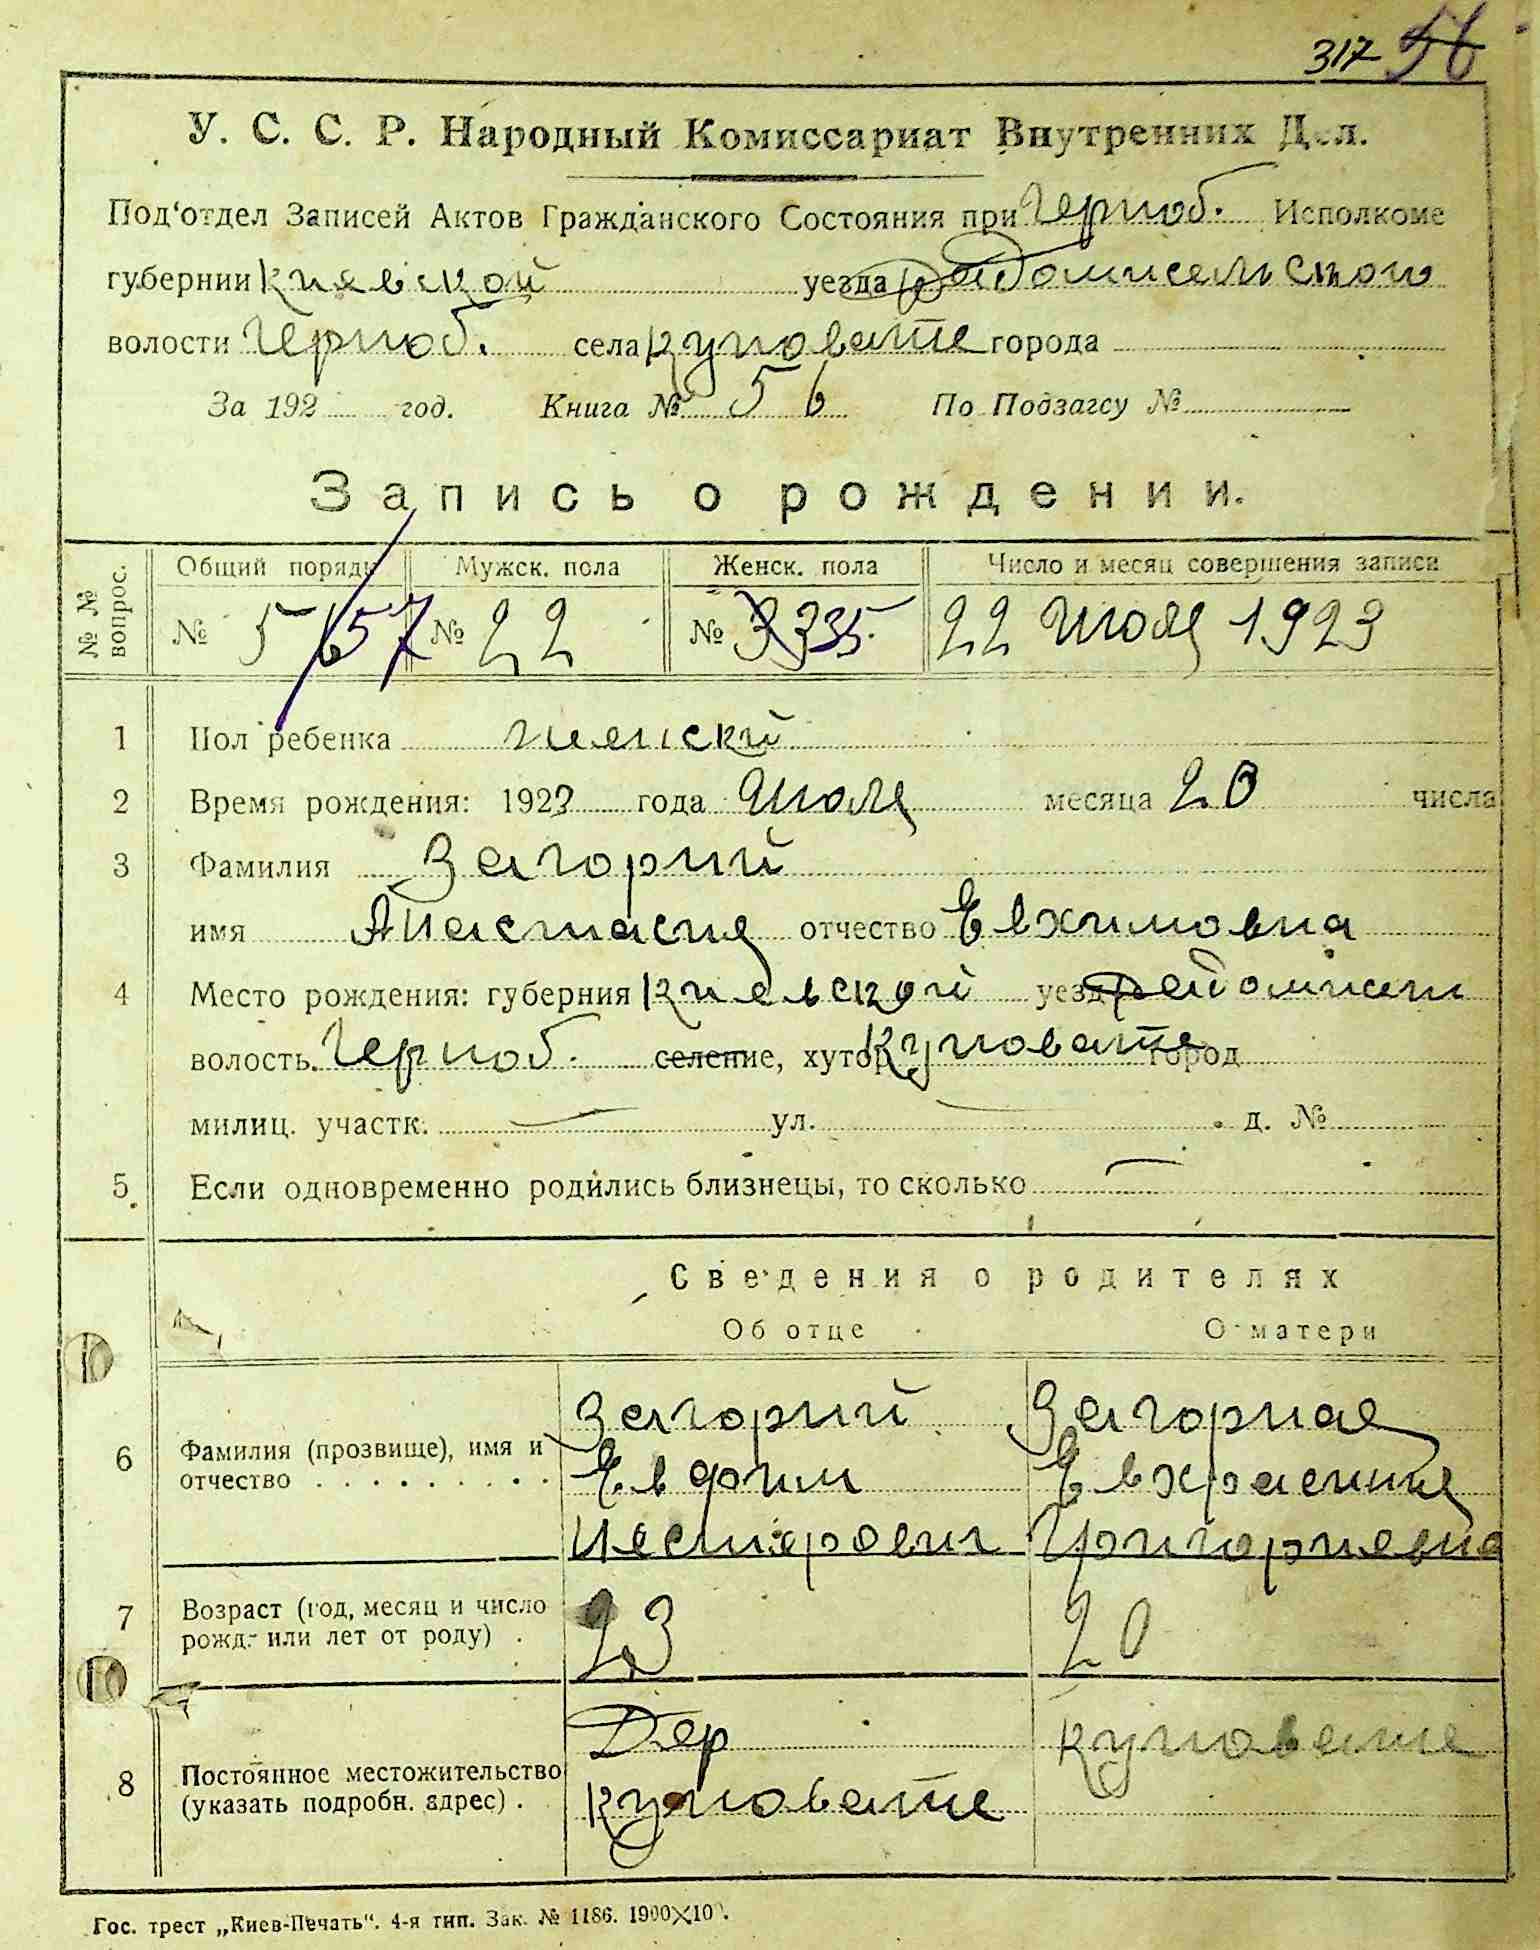 317 56
У. С. С. Р. Народный Комиссариат Внутренних Дел.
Под‘отдел Записей Актов Гражданского Состояния при Черноб. Исполкоме
губернии Киевской уезда Радомисельского
волости Черноб. села Куповате города
За 192 год. Книга № 56 По Подзагсу №
Запись о рождении.
№ № вопрос. Общий порядк Мужск. пола Женск. пола Число и месяц совершения записи
№ 56 57 № 22 № 33 35. 22 Июля 1923
1 Пол ребенка женский
2 Время рождения: 1923 года Июля месяца 20 числа
3 Фамилия Загорний
имя Анастасия отчество Евхимовна
4 Место рождения: губерния Киевской уезд Радомисел
волость. Черноб. селение, хутор Куповате город
милиц. участк. — ул. — д. №
5 Если одновременно родились близнецы, то сколько —
Сведения о родителях
Об отце О матери
6 Фамилия (прозвище), имя и отчество Загорний Загорная
Евфим Евхрасиния
Нестерович Григориевна
7 Возраст (год, месяц и число рожд. или лет от роду) . 23 20
8 Постоянное местожительство (указать подробн. адрес) . Дер Куповате
Куповате
Гос. трест „Киев-Печать“. 4-я тип. Зак. № 1186. 1900×100.